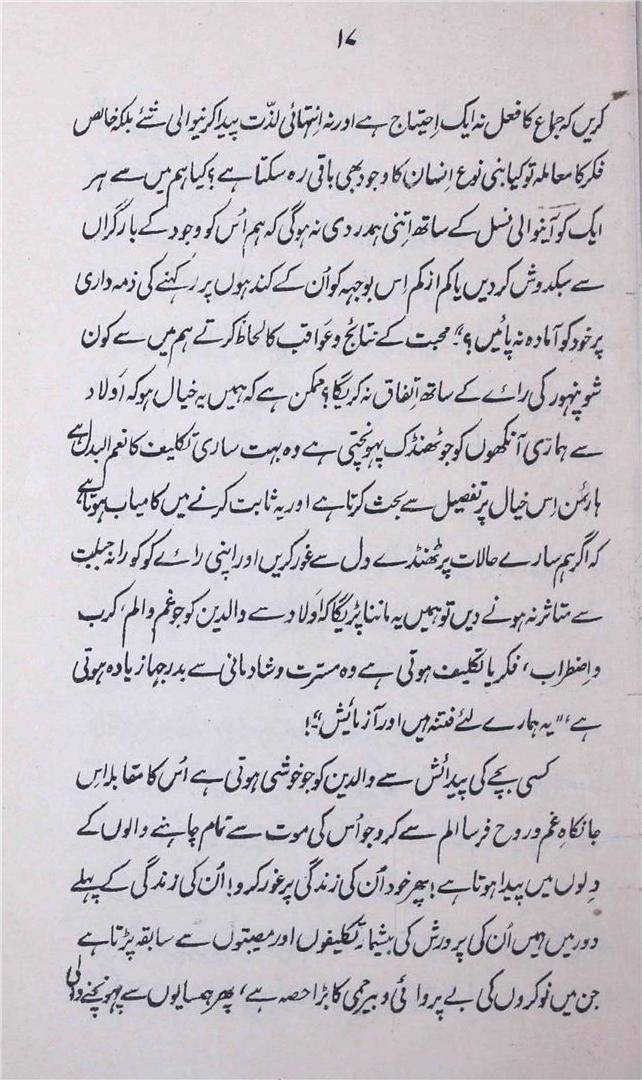 ۱۷
کریں کہ جماع کا فعل نہ ایک اِحتیاج ہے اور نہ اِنتہائی لذّت پیدا کرنیوالی شئے بلکہ خالص
فکر کا معاملہ تو کیا بنی نوع اِنسان کا وجود بھی باقی رہ سکتا ہے؟ کیا ہم میں سے ہر
ایک کو آنیوالی نسل کے ساتھ اِتنی ہمدردی نہ ہوگی کہ ہم اُس کو وجود کے بارِگراں
سے سبکدوش کردیں یا کم از کم اِس بوجہہ کو اُن کے کندہوں پر رکہنے کی ذمہ داری
پر خود کو آمادہ نہ پائیں؟“۔ محبت کے نتائج و عَواقب کا لحاظ کرتے ہم میں سے کون
شوپنہور کی رائے کے ساتھ اِتفاق نہ کریگا؟ ممکن ہے کہ ہمیں یہ خیال ہو کہ اَولاد
سے ہماری آنکھوں کو جو ٹھنڈک پہونچتی ہے وہ بہت ساری تکلیف کا نعم البدل ہے
ہارٹمن اِس خیال پر تفصیل سے بحث کرتا ہے اور یہ ثابت کرنے میں کامیاب ہوتا ہے
کہ اگر ہم سارے حالات پر ٹھنڈے دل سے غور کریں اور اپنی رائے کو کورانہ جبلت
سے متاثر نہ ہونے دیں تو ہمیں یہ ماننا پڑیگا کہ اَولاد سے والدین کو جو غم والم، کرب
و اِضطراب، فکر یا تکلیف ہوتی ہے وہ مسرت و شادمانی سے بدرجہا زیادہ ہوتی
ہے، ”یہ ہمارے لئے فتنہ ہیں اور آزمایٔش“!
کسی بچے کی پیدائش سے والدین کو جو خوشی ہوتی ہے اُس کا مقابلہ اِس
جانکاہ غم و روح فرسا الم سے کرو جو اُس کی موت سے تمام چاہنے والوں کے
دِلوں میں پیدا ہوتا ہے! پھر خود اُن کی زندگی پر غور کرو! اُن کی زندگی کے پہلے
دور میں ہمیں اُن کی پرورش کی بیشمار تکلیفوں اور مصیبتوں سے سابقہ پڑتا ہے
جن میں نوکروں کی بے پروائی و بیرحمی کا بڑا حصہ ہے، پھر ہمسایوں سے پہونچنے والی